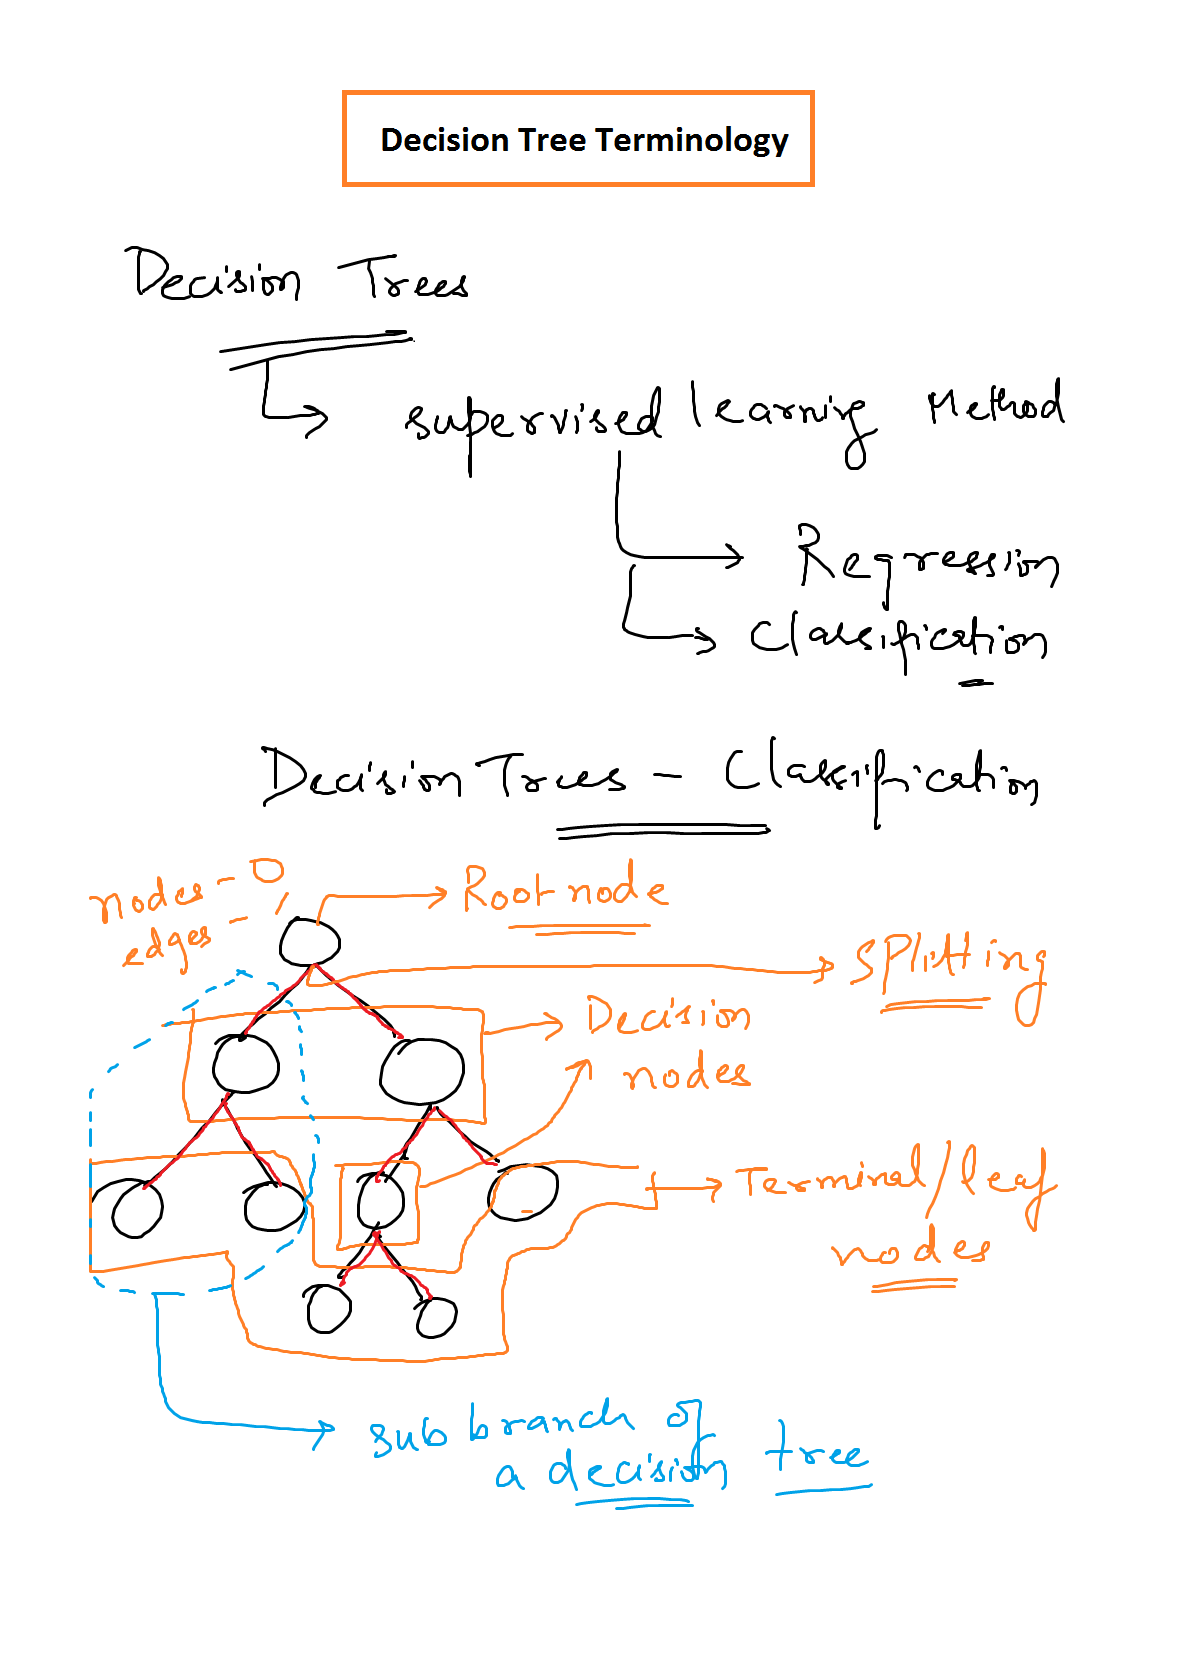 Decision Tree Terminology
Decision Trees
supervised learning Method
Regression
Classification
Decision Trees - Classification
nodes - O
edges - /
Root node
Splitting
Decision
nodes
Terminal/leaf
nodes
sub branch of
a decision tree